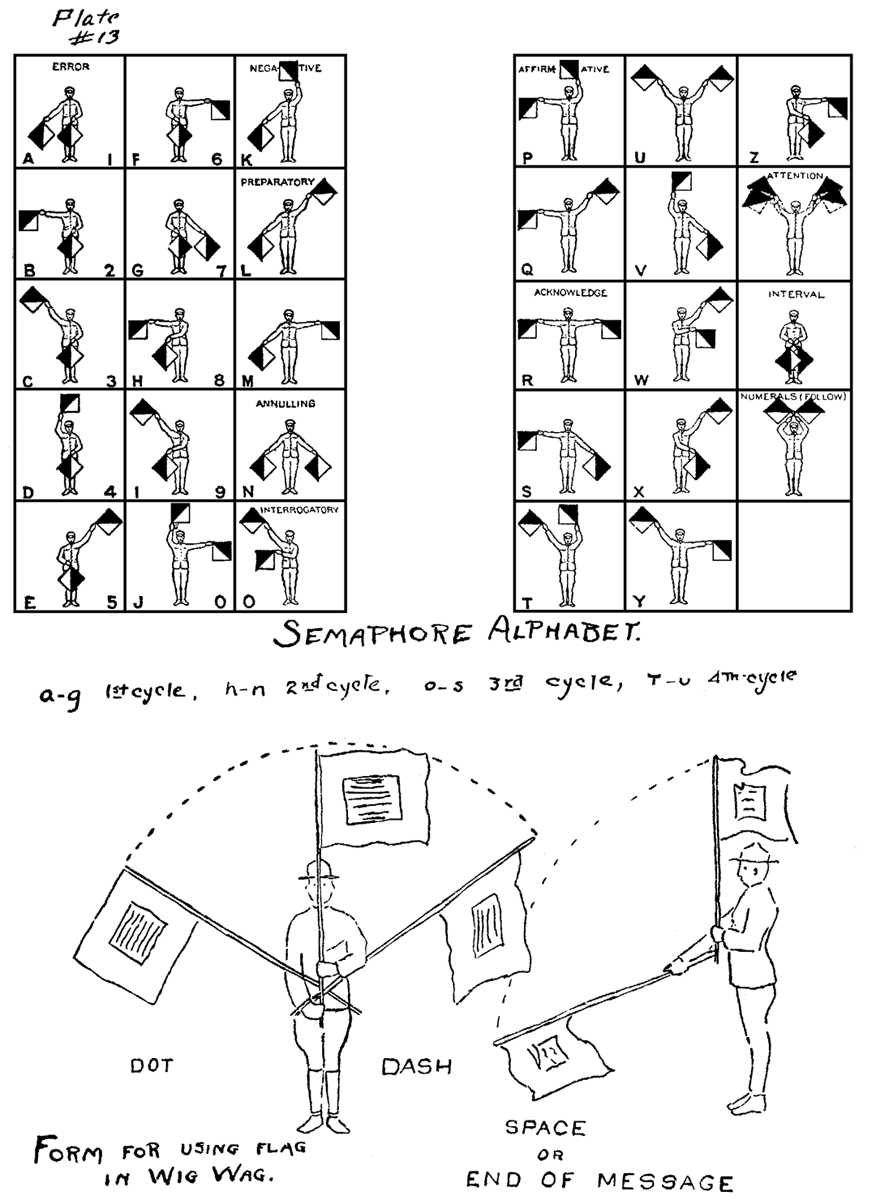 Plate
#13
ERROR
A 1
F 6
NEGATIVE
K
B 2
G 7
PREPARATORY
L
C 3
H 8
M
D 4
I 9
ANNULLING
N
E 5
J 0
INTERROGATORY
O
AFFIRMATIVE
P
U
Z
Q
V
ATTENTION
ACKNOWLEDGE
R
W
INTERVAL
S
X
NUMERALS (FOLLOW)
T
Y
SEMAPHORE ALPHABET.
a-g 1st cycle, h-n 2nd cycle, o-s 3rd cycle, T-u 4TH-cycle
DOT
DASH
SPACE
OR
END OF MESSAGE
FORM FOR USING FLAG
IN WIG WAG.